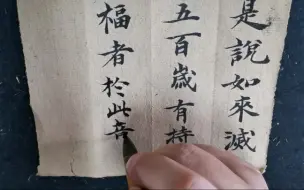 是說如來滅
五百歲有持
福者於此